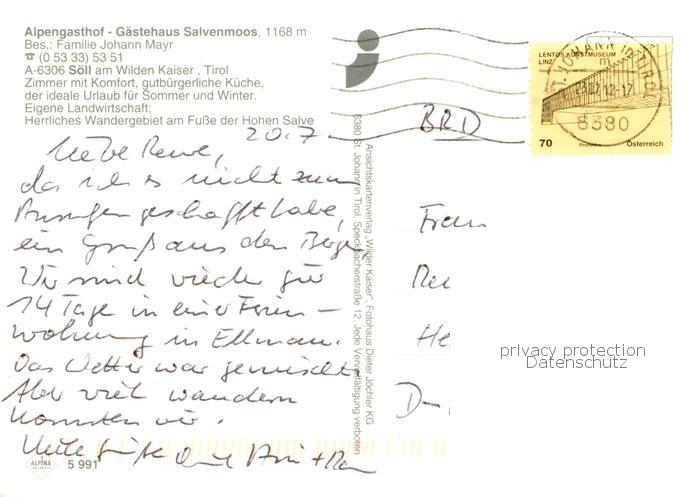 Alpengasthof - Gästehaus Salvenmoos, 1168 m
Bes.: Familie Johann Mayr
☎ (0 53 33) 53 51
A-6306 Söll am Wilden Kaiser, Tirol
Zimmer mit Komfort, gutbürgerliche Küche,
der ideale Urlaub für Sommer und Winter.
Eigene Landwirtschaft;
Herrliches Wandergebiet am Fuße der Hohen Salve
20.7.
Liebe
da ich es nicht zum
geschafft habe,
ein Gruß aus den Bergen
Wir sind wieder für
14 Tage in einer Ferien-
wohnung in Ellmau.
Das Wetter war gemischt.
Aber viel wandern
konnten wir.
ALPINA
5 991
Ansichtskartenverlag „Wilder Kaiser", Fotohaus Dieter Jöchler KG
6380 St. Johann in Tirol, Speckbacherstraße 12, Jede Vervielfältigung verboten
LENTOS KUNSTMUSEUM
LINZ
ST. JOHANN IN TIROL
6380
70
Österreich
BRD
Frau
He
D-
privacy protection
Datenschutz